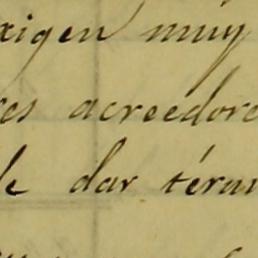 xigen muy
es acreedore
le dar térm